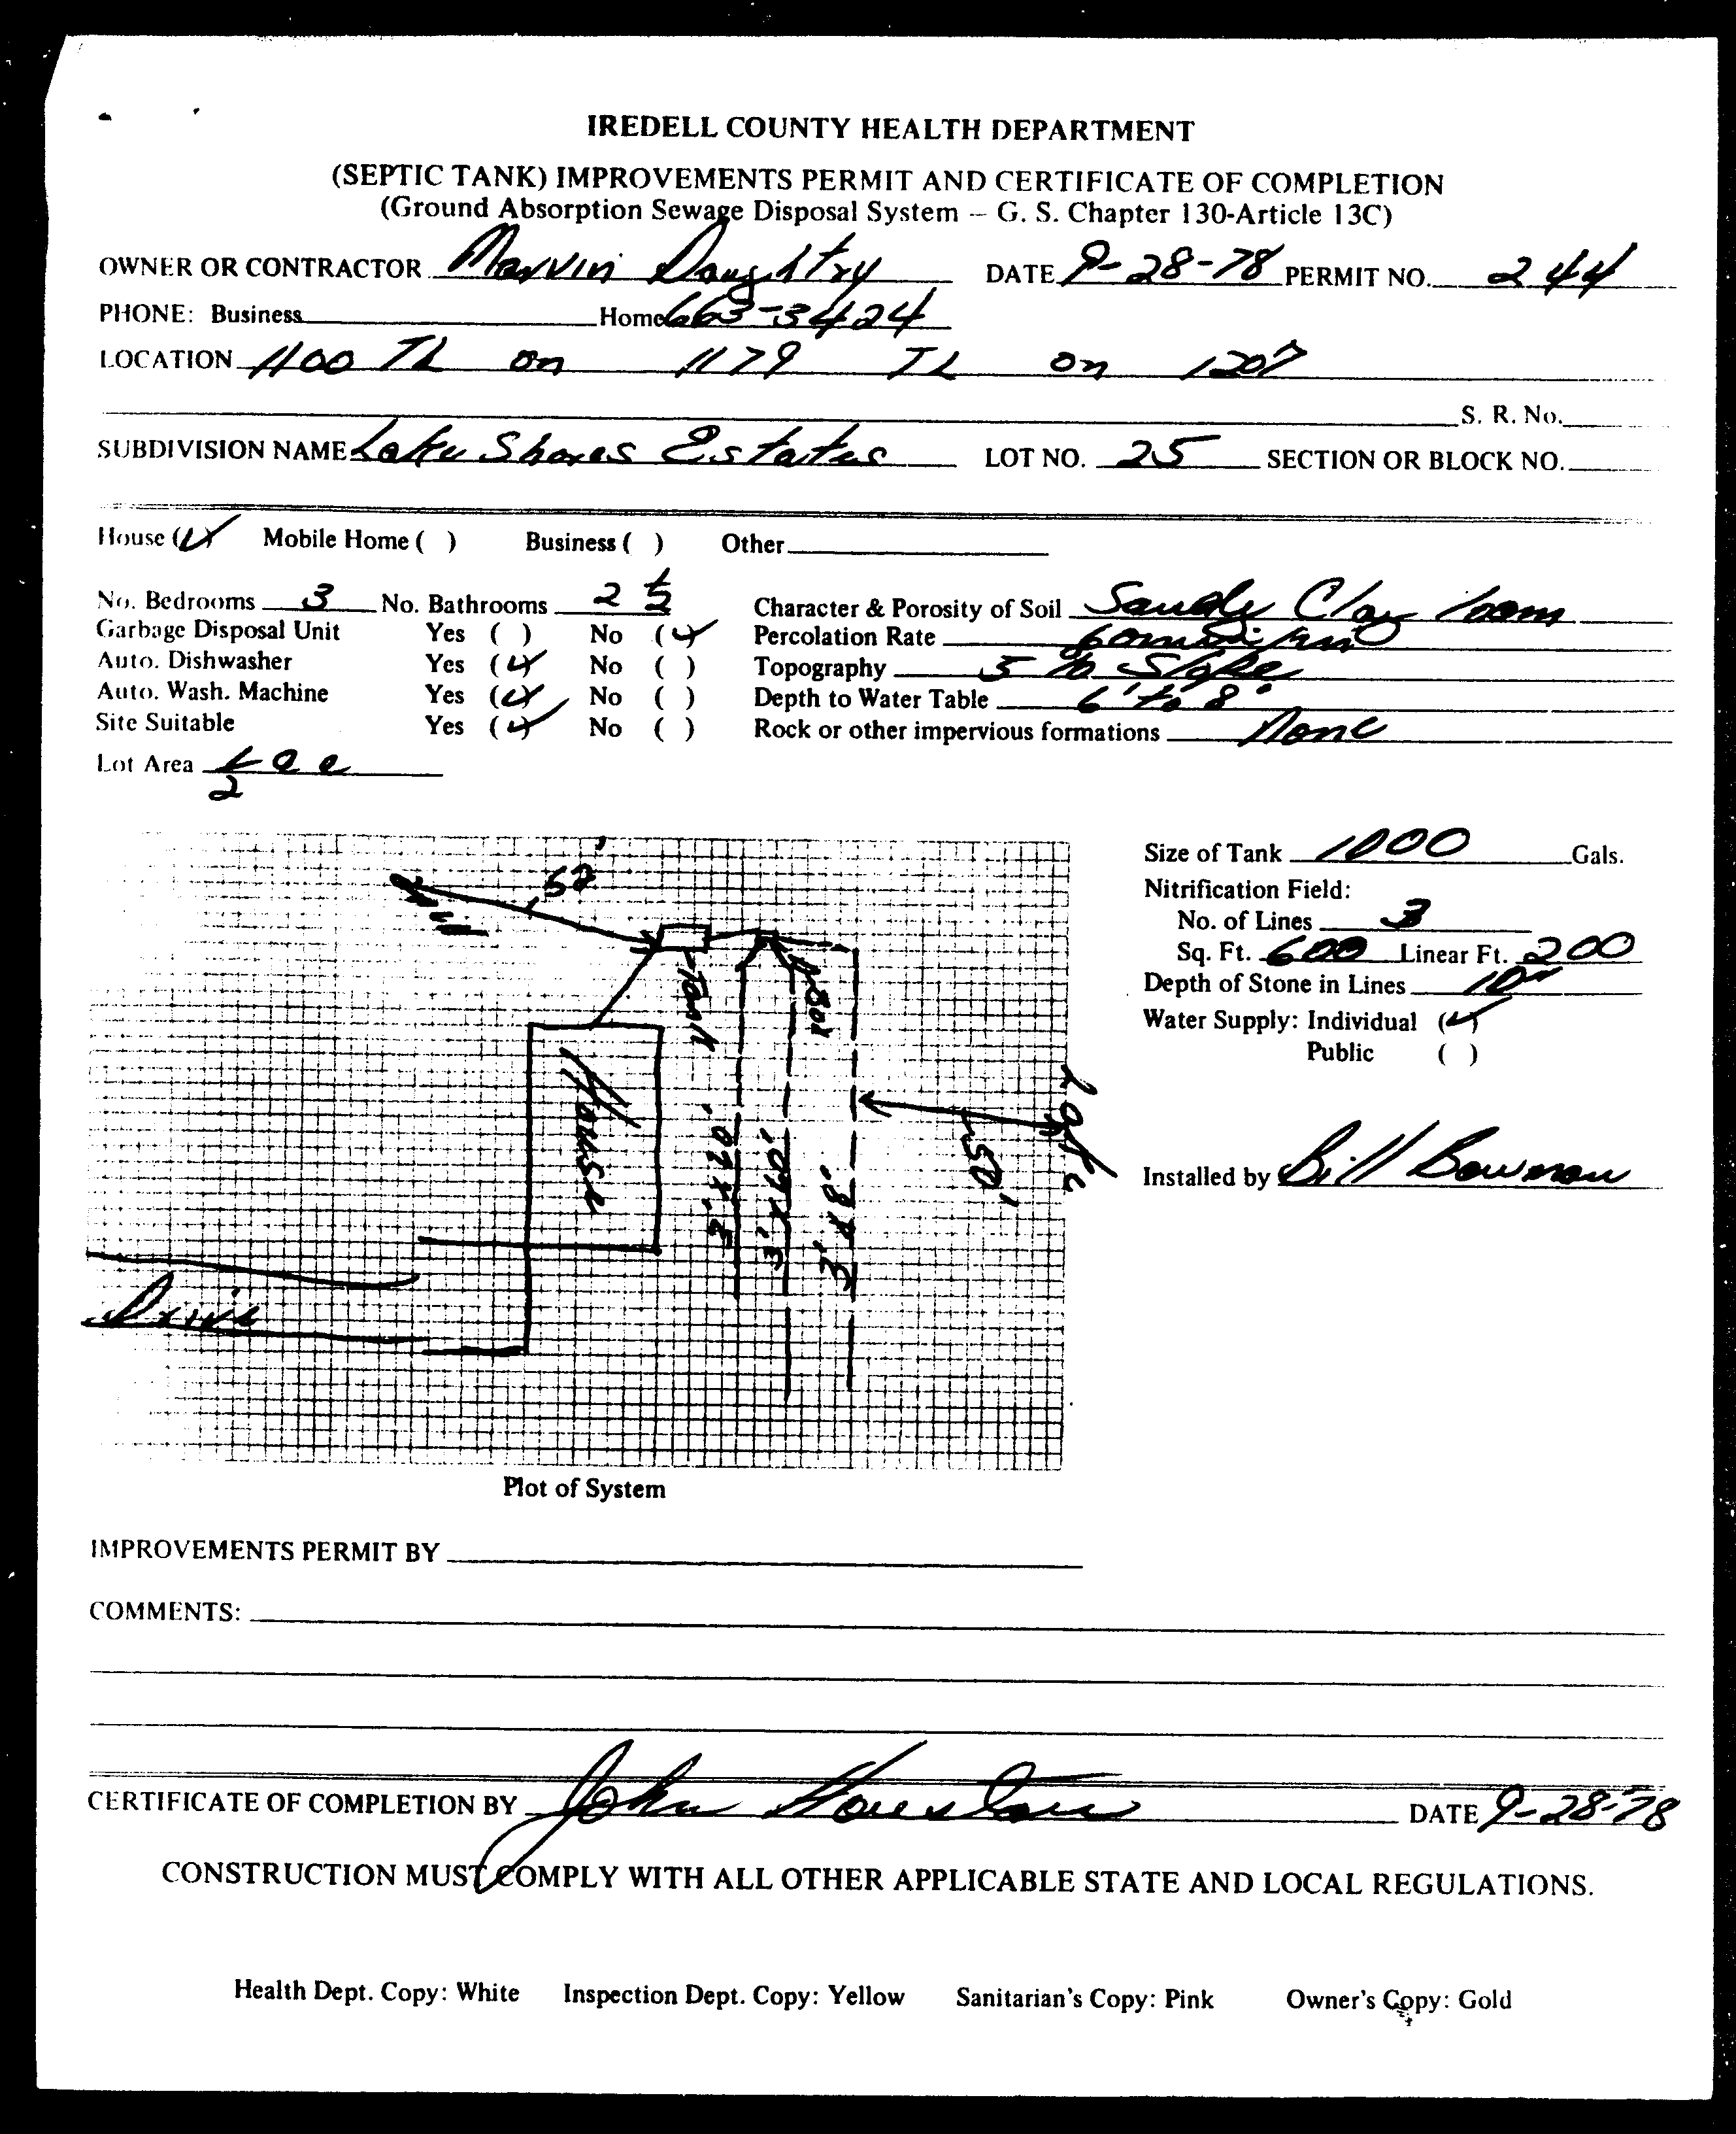 IREDELL COUNTY HEALTH DEPARTMENT
(SEPTIC TANK) IMPROVEMENTS PERMIT AND CERTIFICATE OF COMPLETION
(Ground Absorption Sewage Disposal System – G. S. Chapter 130-Article 13C)
OWNER OR CONTRACTOR Marvin Daughtry DATE 9-28-78 PERMIT NO. 244
PHONE: Business Home 663-3424
LOCATION 1100 TL on 1179 TL on 1207
S. R. No.
SUBDIVISION NAME Lake Shores Estates LOT NO. 25 SECTION OR BLOCK NO.
House (✓) Mobile Home ( ) Business ( ) Other
No. Bedrooms 3 No. Bathrooms 2 ½ Character & Porosity of Soil Sandy Clay loam
Garbage Disposal Unit Yes ( ) No (✓) Percolation Rate
Auto. Dishwasher Yes (✓) No ( ) Topography 5 % Slope
Auto. Wash. Machine Yes (✓) No ( ) Depth to Water Table 6' to 8'
Site Suitable Yes (✓) No ( ) Rock or other impervious formations None
Lot Area ½ ac
Size of Tank 1000 Gals.
Nitrification Field:
No. of Lines 3
Sq. Ft. 600 Linear Ft. 200
Depth of Stone in Lines 10"
Water Supply: Individual (✓)
Public ( )
Installed by Bill Bowman
52'
Well
Tank
D Box
House
3' x 70'
50'
Lake
Drive
Plot of System
IMPROVEMENTS PERMIT BY
COMMENTS:
CERTIFICATE OF COMPLETION BY John Houston DATE 9-28-78
CONSTRUCTION MUST COMPLY WITH ALL OTHER APPLICABLE STATE AND LOCAL REGULATIONS.
Health Dept. Copy: White Inspection Dept. Copy: Yellow Sanitarian's Copy: Pink Owner's Copy: Gold